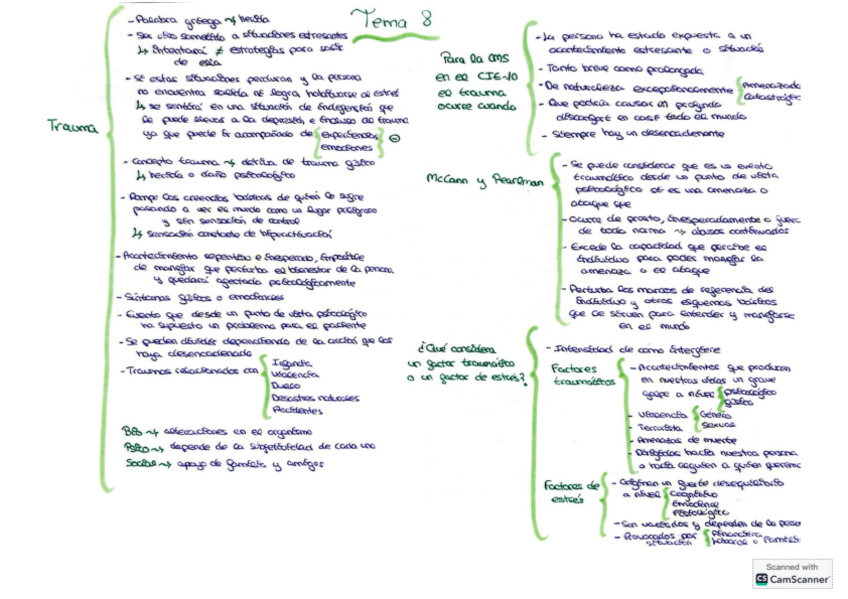 Tema 8
Trauma
- Palabra griega ⤳ herida
- Ser vivo sometido a situaciones estresantes
↳ Intentará ≠ estrategias para salir
de esta
- Si estas situaciones perduran y la persona
no encuentra salida ni logra habituarse al estrés
↳ se sentirá en una situación de indefensión que
le puede llevar a la depresión e incluso al trauma
ya que puede ir acompañado de experiencias
emociones
- Concepto trauma ⤳ deriva de trauma físico
↳ herida o daño psicológico
- Rompe las creencias básicas de quien lo sufre
pasando a ver el mundo como un lugar peligroso
y sin sensación de control
↳ sensación constante de hiperactivación
- Acontecimiento repentino e inesperado, imposible
de manejar que perturba el bienestar de la persona
y quedará afectada psicológicamente
- Síntomas físicos o emocionales
- Evento que desde un punto de vista psicológico
ha supuesto un problema para el paciente
- Se pueden dividir dependiendo de la acción que los
haya desencadenado
- Traumas relacionados con
Infancia
Violencia
Duelo
Desastres naturales
Accidentes
Bio ⤳ alteraciones en el organismo
Psico ⤳ depende de la subjetividad de cada uno
Social ⤳ apoyo de familia y amigos
Para la OMS
en el CIE-10
el trauma
ocurre cuando
- La persona ha estado expuesta a un
acontecimiento estresante o situación
- Tanto breve como prolongada
- De naturaleza excepcionalmente
Amenazado
Catastrófic
- Que podría causar un profundo
disconfort en casi todo el mundo
- Siempre hay un desencadenante
McCann y Pearlman
- Se puede considerar que es un evento
traumático desde un punto de vista
psicológico si es una amenaza o
ataque que
- Ocurre de pronto, inesperadamente o fuera
de toda norma ⤳ abusos continuados
- Excede la capacidad que percibe el
individuo para poder manejar la
amenaza o el ataque
- Perturba los marcos de referencia del
individuo y otros esquemas básicos
que le sirven para entender y manejarse
en el mundo
¿Qué considera
un factor traumático
o un factor de estrés?
- Intensidad de como interfiere
Factores
traumáticos
- Acontecimientos que producen
en nuestras vidas un grave
golpe a nivel
psicológico
físico
- Violencia
Género
sexual
- Terrorista
- Amenazas de muerte
- Dirigidas hacia nuestra persona
o hacia alguien a quien queremo
Factores de
estrés
- Originan un fuerte desequilibrio
a nivel
Cognitivo
Emocional
Psicológico
- Son variados y dependen de la perso
- Provocados por
situación
financiera
laboral o familia
Scanned with
CS CamScanner